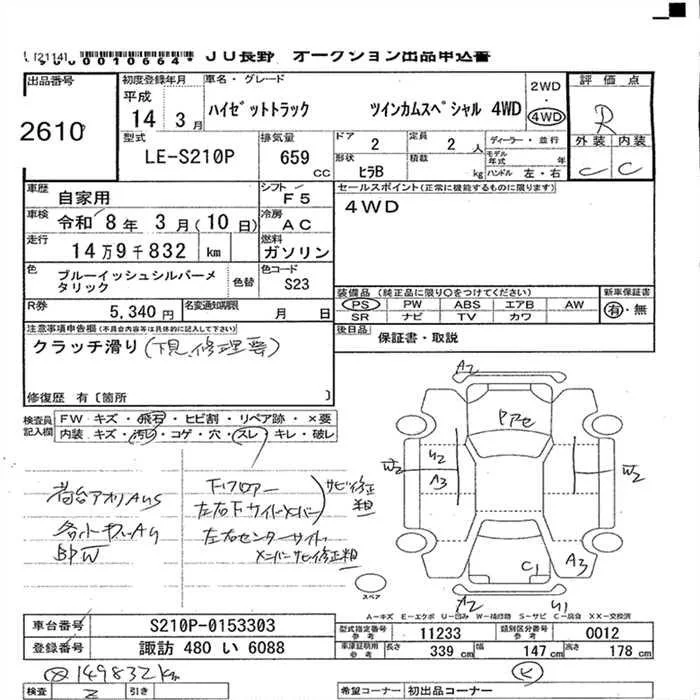 0010664* JU長野 オークション出品申込書
出品番号 2610
初度登録年月 平成 14年 3月
車名・グレード ハイゼットトラック ツインカムスペシャル 4WD
2WD
4WD
評価点 R
外装 C 内装 C
型式 LE-S210P
排気量 659 CC
ドア 2 定員 2 人 ディーラー・並行
形状 ヒラB 積載 kg モデル年式 年 ハンドル 左・右
車歴 自家用
シフト F5
セールスポイント(正常に機能するものに限ります)
4WD
車検 令和 8年 3月(10日)
冷房 AC
走行 14万9千832 km
燃料 ガソリン
色 ブルーイッシュシルバーメタリック 色替
色コード S23
装備品 (純正品に限り○をつけてください) 新車保証書
PS PW ABS エアB AW 有・無
SR ナビ TV カワ
R券 5,340円 名変通知期限 月 日
後日品 保証書・取説
注意事項申告欄(不具合内容等は具体的に記入して下さい)
クラッチ滑り(下見、修理要)
修復歴 有〔箇所 〕
検査員記入欄 FW キズ・飛石・ヒビ割・リペア跡・×要
内装 キズ・汚レ・コゲ・穴・スレ・キレ・破レ
荷台アオリAUS
下フロアー
左右下サイドメンバー
サビ修正粗
左右センターサイド
メンバーサビ修正粗
A2
Pアセ
W2
U2
A3
W2
C1
A3
A2
U1
スペア
A-キズ E-エクボ U-凹み W-補修跡 S-サビ C-腐食 XX-交換済
車台番号 S210P-0153303
型式指定番号 参考 11233 類別区分番号 参考 0012
登録番号 諏訪 480 い 6088
車庫証明用 参考 長さ 339 cm 幅 147 cm 高さ 178 cm
149832km
検査 引き
希望コーナー 初出品コーナー